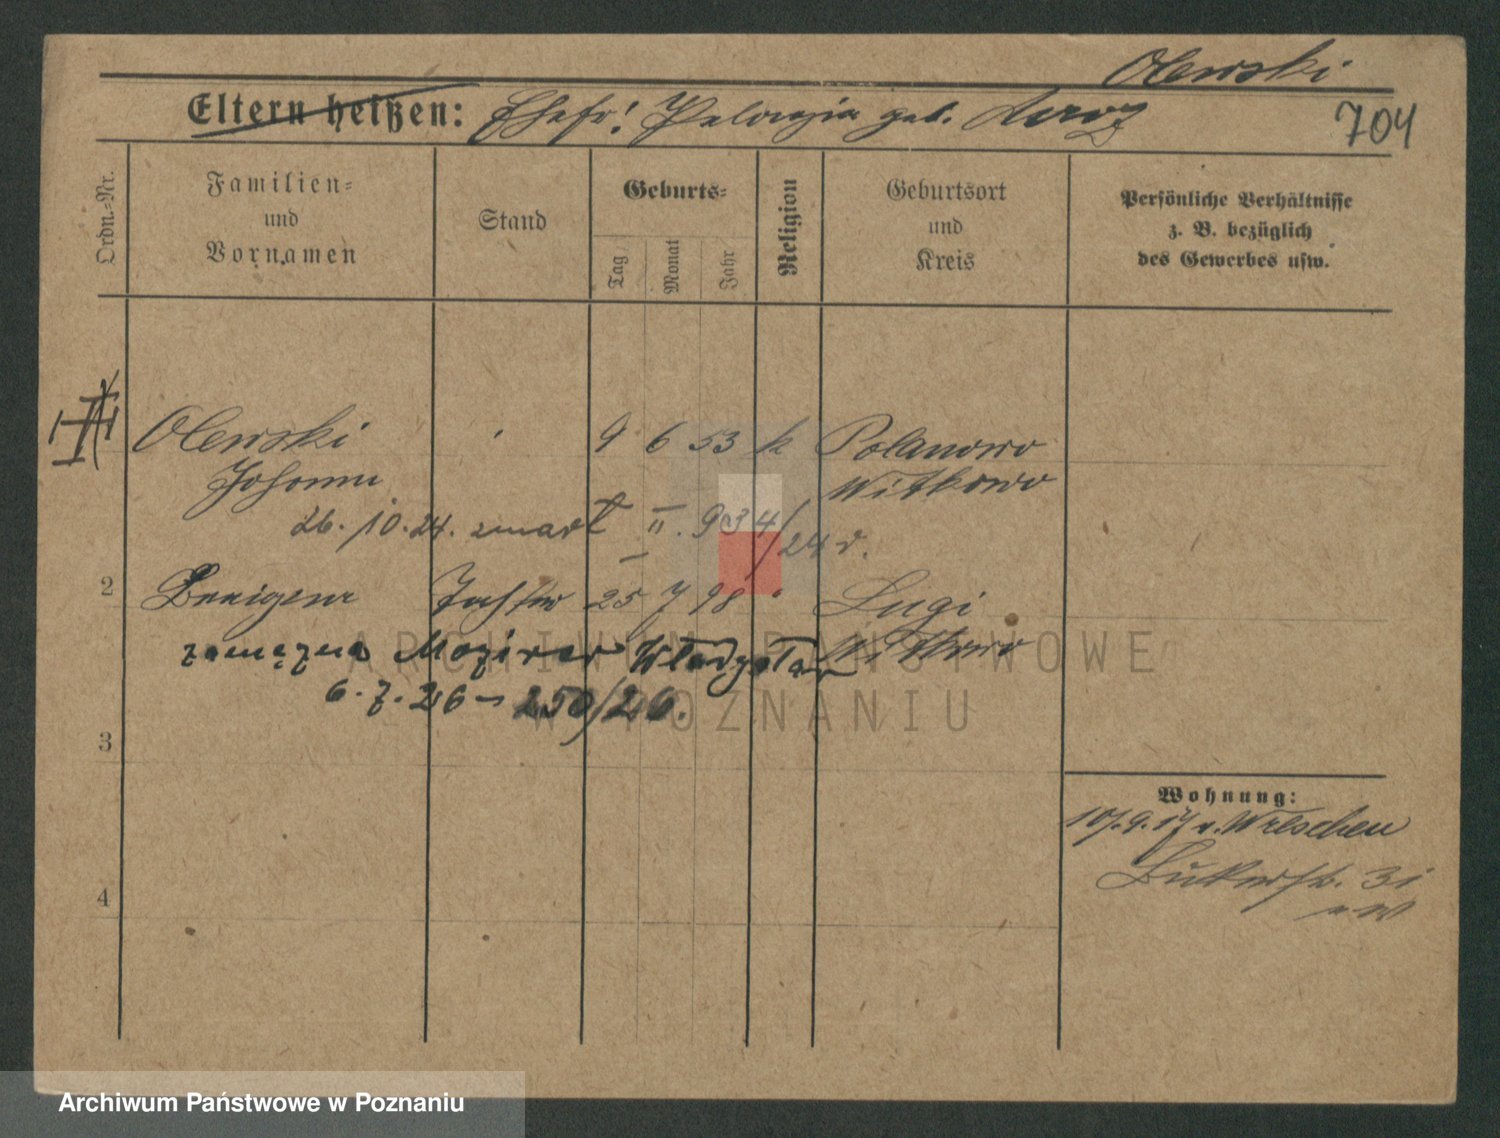 Olewski
Eltern heißen: Ehefr! Pelagia geb.
704
Ordn.-Nr.
Familien-
und
Vornamen
Stand
Geburts-
Tag
Monat
Jahr
Religion
Geburtsort
und
Kreis
Persönliche Verhältnisse
z. B. bezüglich
des Gewerbes usw.
Olewski 9 6 53 k Polanowo
Johann Witkowo
26. 10. 24. zmarł II. 934/24 r.
2 Tochter 25 7 98 " Lugi
Witkowo
zamężna Władysław
6. 7. 26 – 250/26.
3
Wohnung:
10/.9.17 v. Wreschen
31
4
ARCHIWUM PAŃSTWOWE
W POZNANIU
Archiwum Państwowe w Poznaniu